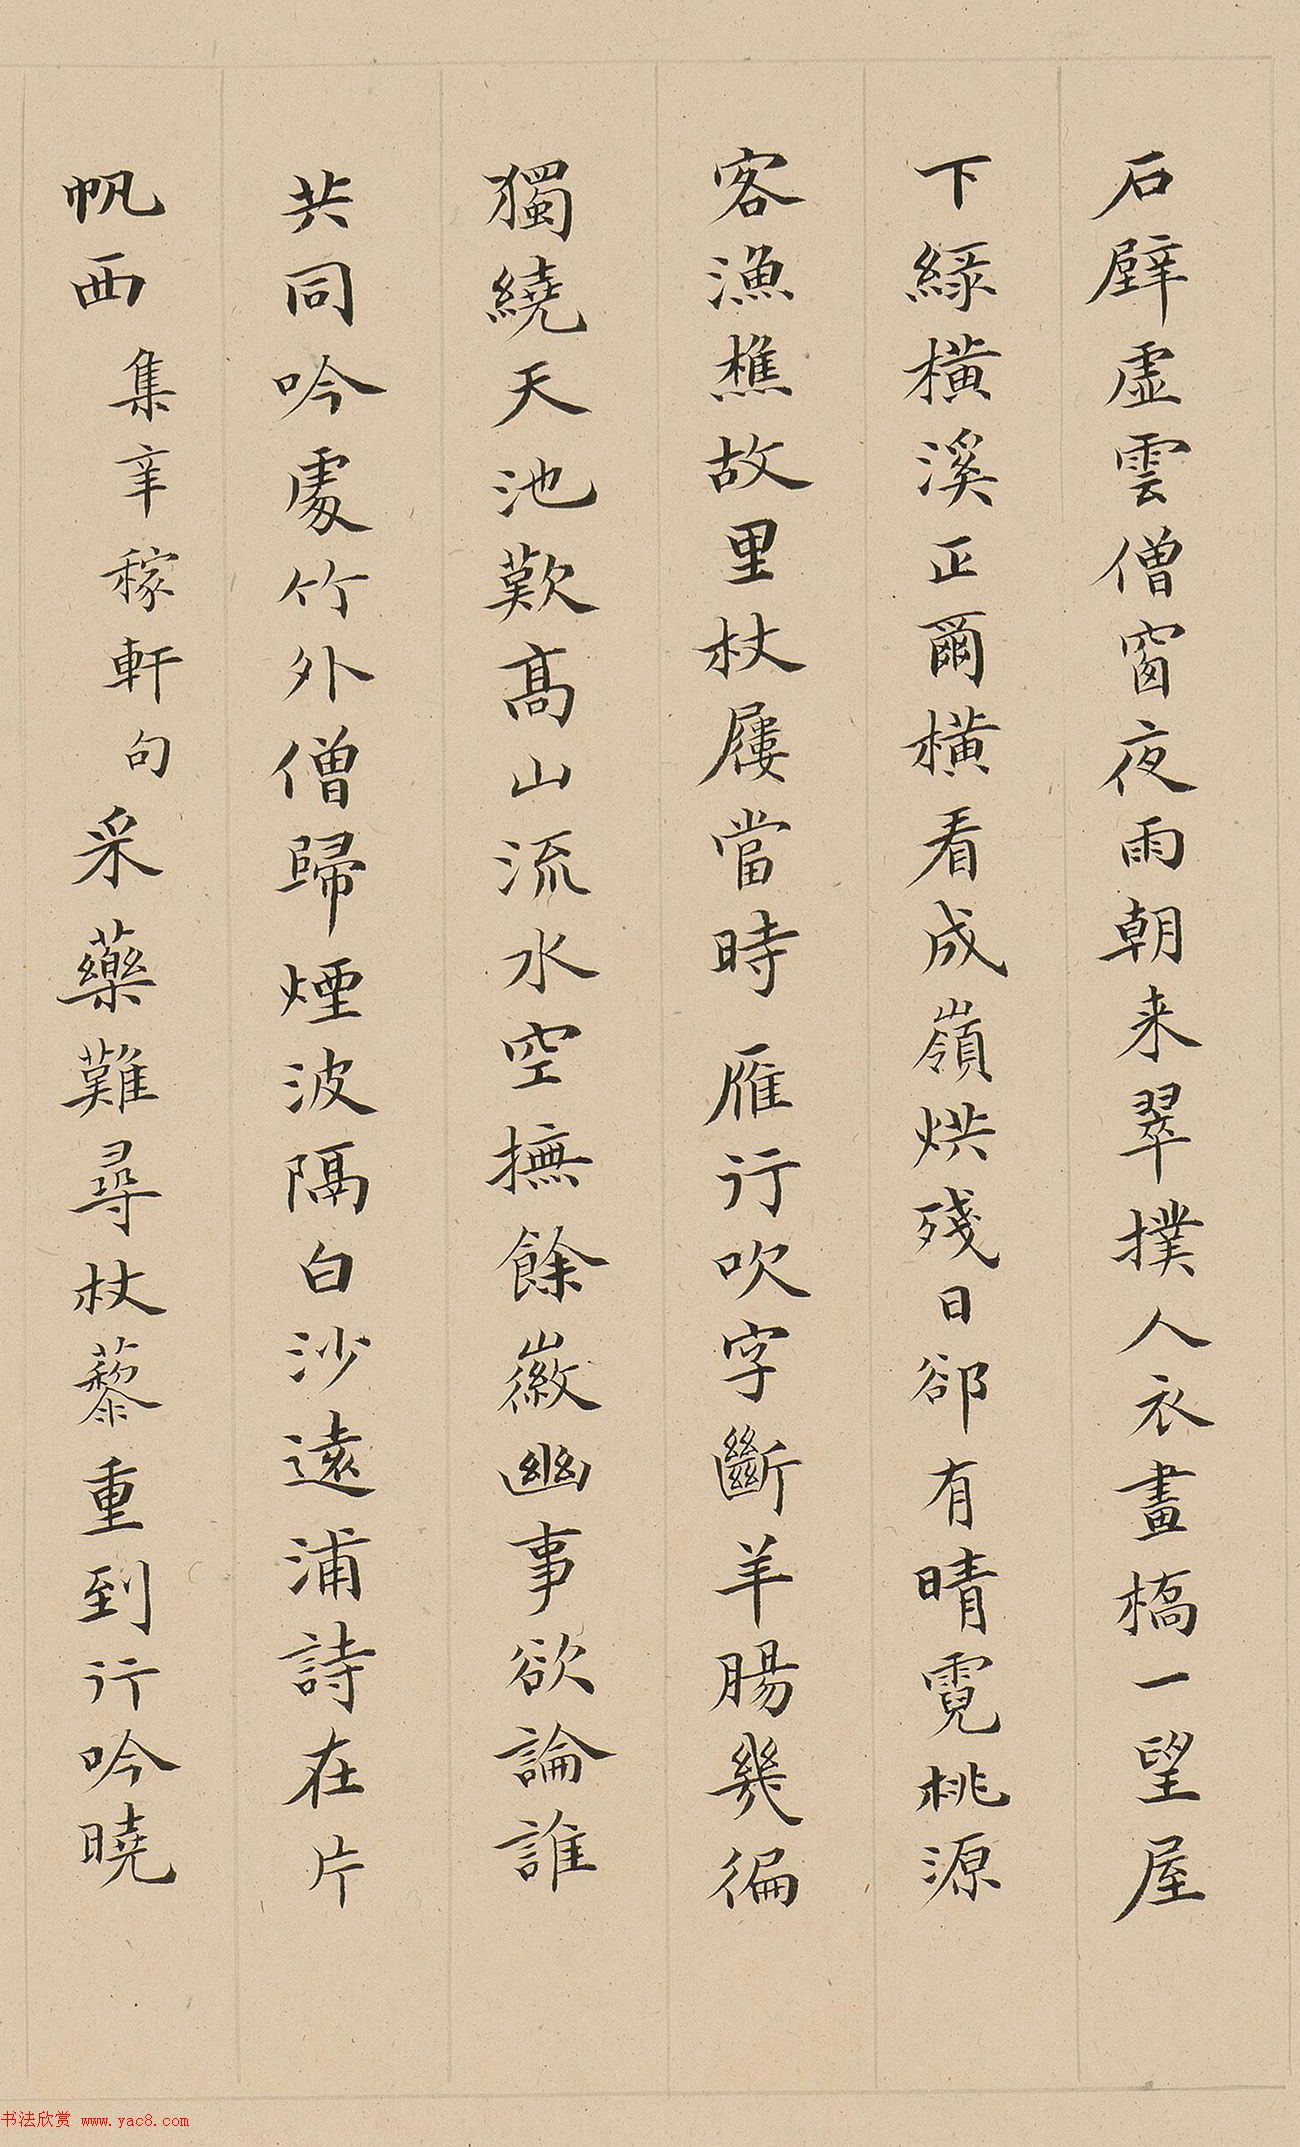 石壁虛雲僧窗夜雨朝来翠撲人衣畫橋一望屋
下綠橫溪正爾橫看成嶺烘殘日卻有晴霓桃源
客漁樵故里杖屨當時雁行吹字斷羊腸幾徧
獨繞天池歎高山流水空撫餘徽幽事欲論誰
共同吟處竹外僧歸煙波隔白沙遠浦詩在片
帆西集辛稼軒句采藥難尋杖藜重到行吟曉
书法欣赏 www.yac8.com